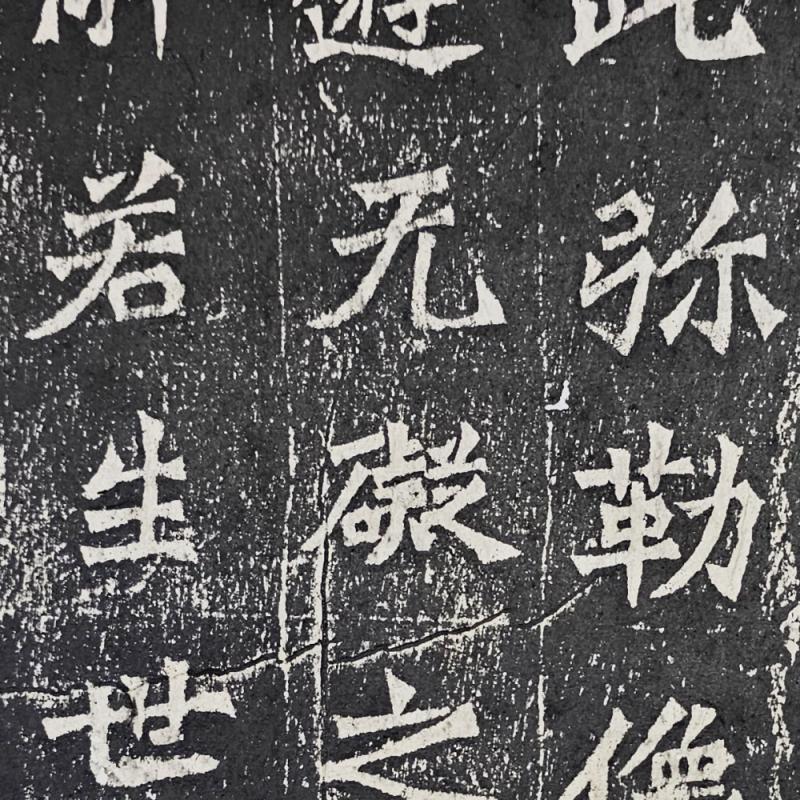 此弥勒像
遊无礙之
所若生世